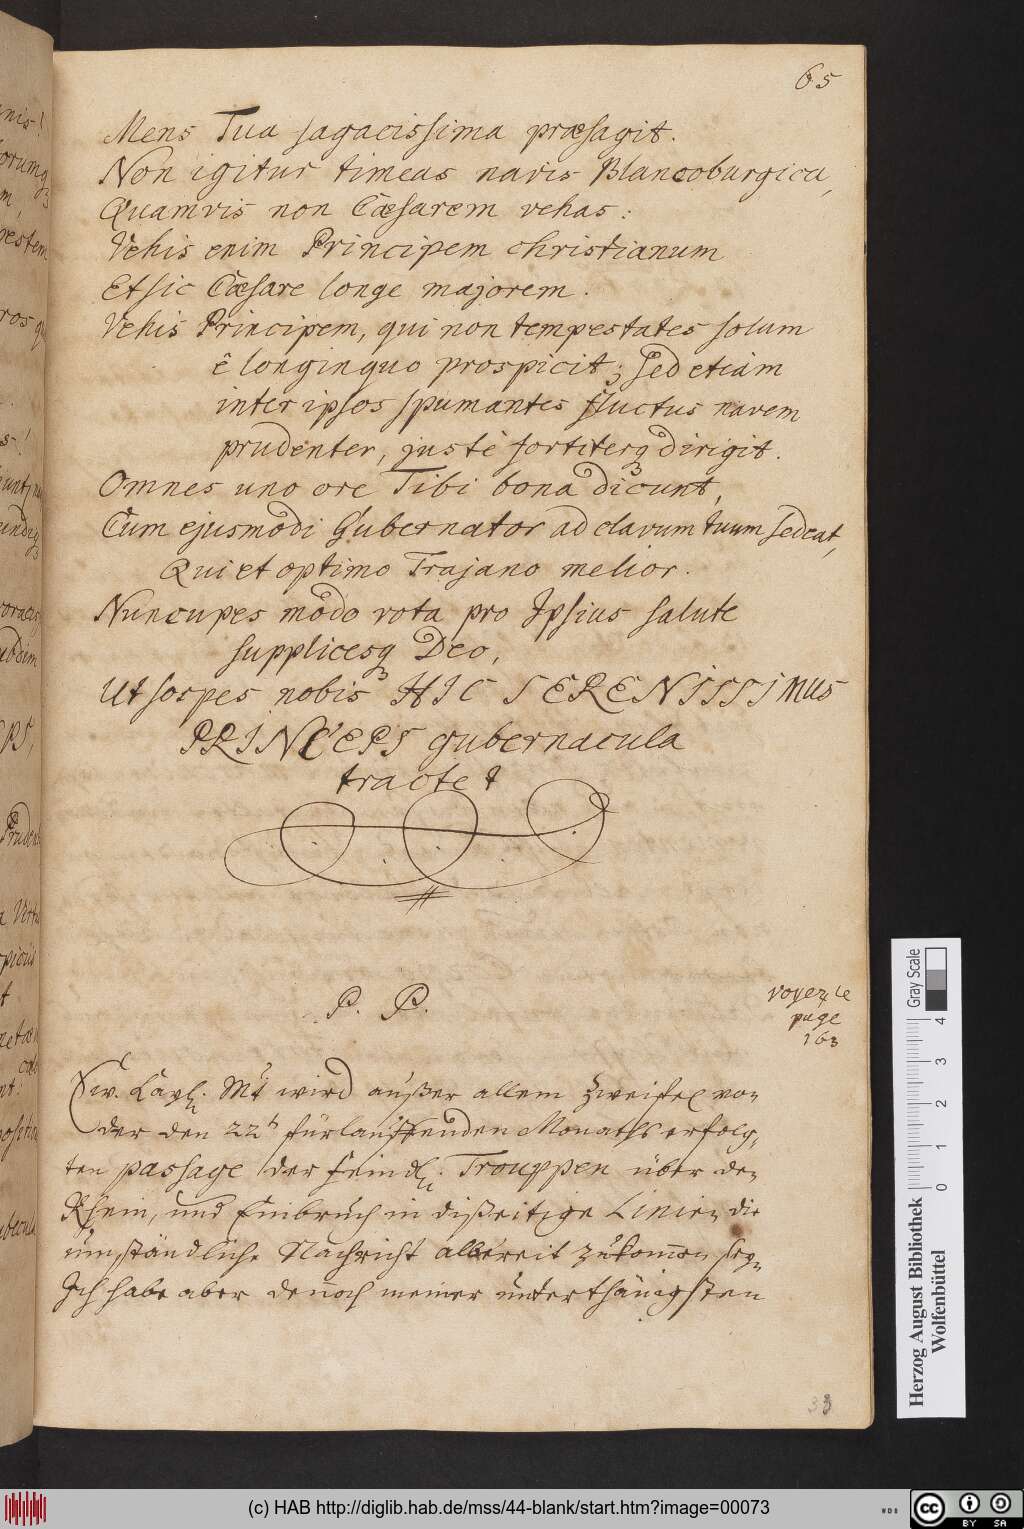 65
Mens Tua sagacissima præsagit.
Non igitur timeas navis Blancoburgica,
Quamvis non Cæsarem vehas:
Vehis enim Principem christianum
Et sic Cæsare longe majorem.
Vehis Principem, qui non tempestates solum
ê longinquo prospicit; sed etiam
inter ipsos spumantes fluctus navem
prudenter, justè fortiterq dirigit.
Omnes uno ore Tibi bona dicunt,
Cum ejusmodi Gubernator ad clavum tuum sedeat,
Qui et optimo Trajano melior.
Nuncupes modo vota pro Ipsius salute
supplicesq Deo,
Ut sospes nobis HIC SERENISSIMUS
PRINCEPS gubernacula
tractet
P. P.
voyez le
page
163
Ew. Kayl. Mt wird außer allem Zweiffel von
der den 22t fürlauffenden Monaths erfolg,
ten passage der feindl. Trouppen über den
Rhein, und Einbruch in disseitige Linien die
umständliche Nachricht albereit zukommen seyn
Ich habe aber dennoch meiner unterthänigsten
33
Gray Scale
0 1 2 3 4
Herzog August Bibliothek
Wolfenbüttel
(c) HAB http://diglib.hab.de/mss/44-blank/start.htm?image=00073
WDB
cc BY SA